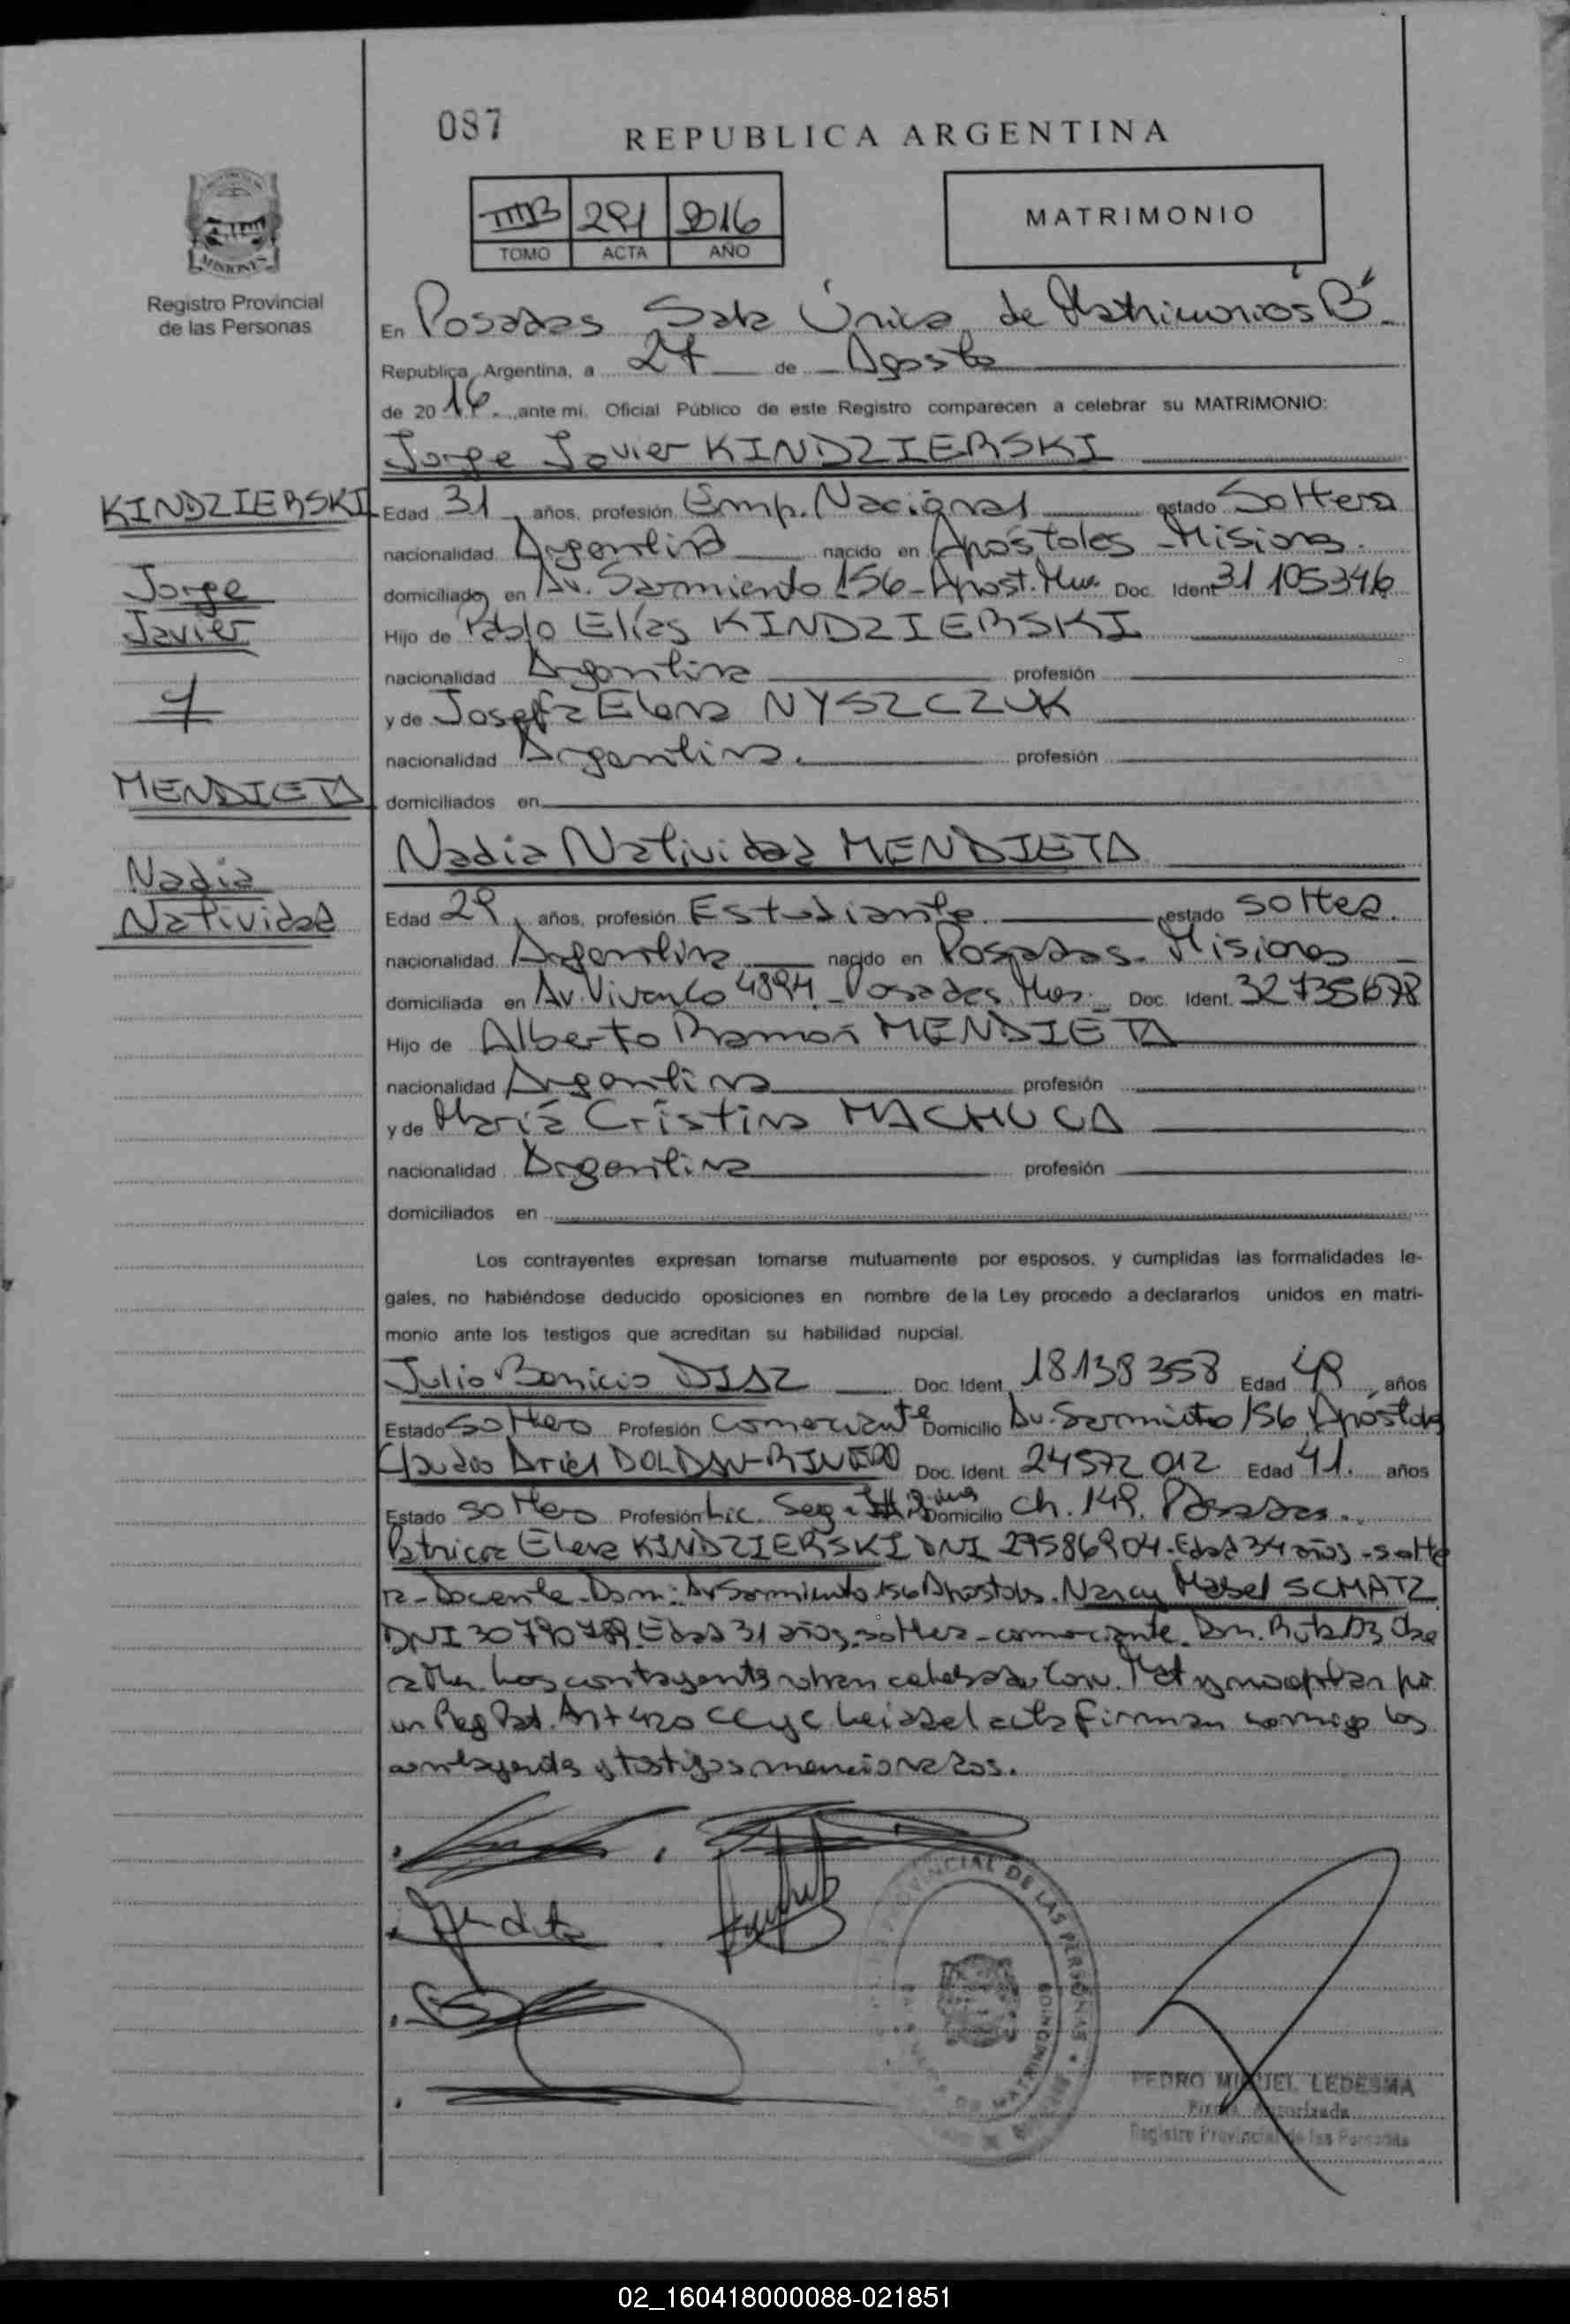 087
REPUBLICA ARGENTINA
IIIB 291 2016
TOMO ACTA AÑO
MATRIMONIO
MISIONES
Registro Provincial
de las Personas
En Posadas Sala Única de Matrimonios B
Republica Argentina, a 27 de Agosto
de 2016, ante mi, Oficial Público de este Registro comparecen a celebrar su MATRIMONIO:
Jorge Javier KINDZIERSKI
KINDZIERSKI
Jorge
Javier
y
MENDIETA
Nadia
Natividad
Edad 31, años, profesión Emp. Nacional estado Soltero
nacionalidad Argentina nacido en Apóstoles Misiones
domiciliado en Av. Sarmiento 156 - Apost. Mnes Doc. Ident 31 105346
Hijo de Pablo Elías KINDZIERSKI
nacionalidad Argentina profesión
y de Josefa Elena NYSZCZUK
nacionalidad Argentina profesión
domiciliados en
Nadia Natividad MENDIETA
Edad 29, años, profesión Estudiante estado soltera
nacionalidad Argentina nacido en Posadas - Misiones
domiciliada en Av. Vivanco 4894 - Posadas Mnes. Doc. Ident. 32735678
Hijo de Alberto Ramón MENDIETA
nacionalidad Argentina profesión
y de María Cristina MACHUCA
nacionalidad Argentina profesión
domiciliados en
Los contrayentes expresan tomarse mutuamente por esposos, y cumplidas las formalidades le-
gales, no habiéndose deducido oposiciones en nombre de la Ley procedo a declararlos unidos en matri-
monio ante los testigos que acreditan su habilidad nupcial.
Julio Benicio DIAZ Doc. Ident. 18138358 Edad 49 años
Estado soltero Profesión Comerciante Domicilio Av. Sarmiento 156 Apóstoles
Ariel DOLDAN Doc. Ident. 24572012 Edad 41. años
Estado soltero Profesión Lic. Seg. Domicilio Ch. 149. Posadas.
Patricia Elena KINDZIERSKI DNI 29586904 - Edad 34 años - solte
ra - Docente - Dom: Av Sarmiento 156 Apostoles. Nancy Mabel SCHATZ
DNI 30790789 Edad 31 años - soltera - comerciante. Dom. Ruta
Los contrayentes han celebrado Conv. Mat y no optan por
un Reg Pat. Art 420 CCyC leida el acta firman conmigo los
contrayentes y testigos mencionados.
PROVINCIAL DE LAS PERSONAS
PEDRO MIGUEL LEDESMA
Firma Autorizada
Registro Provincial de las Personas
02_160418000088-021851